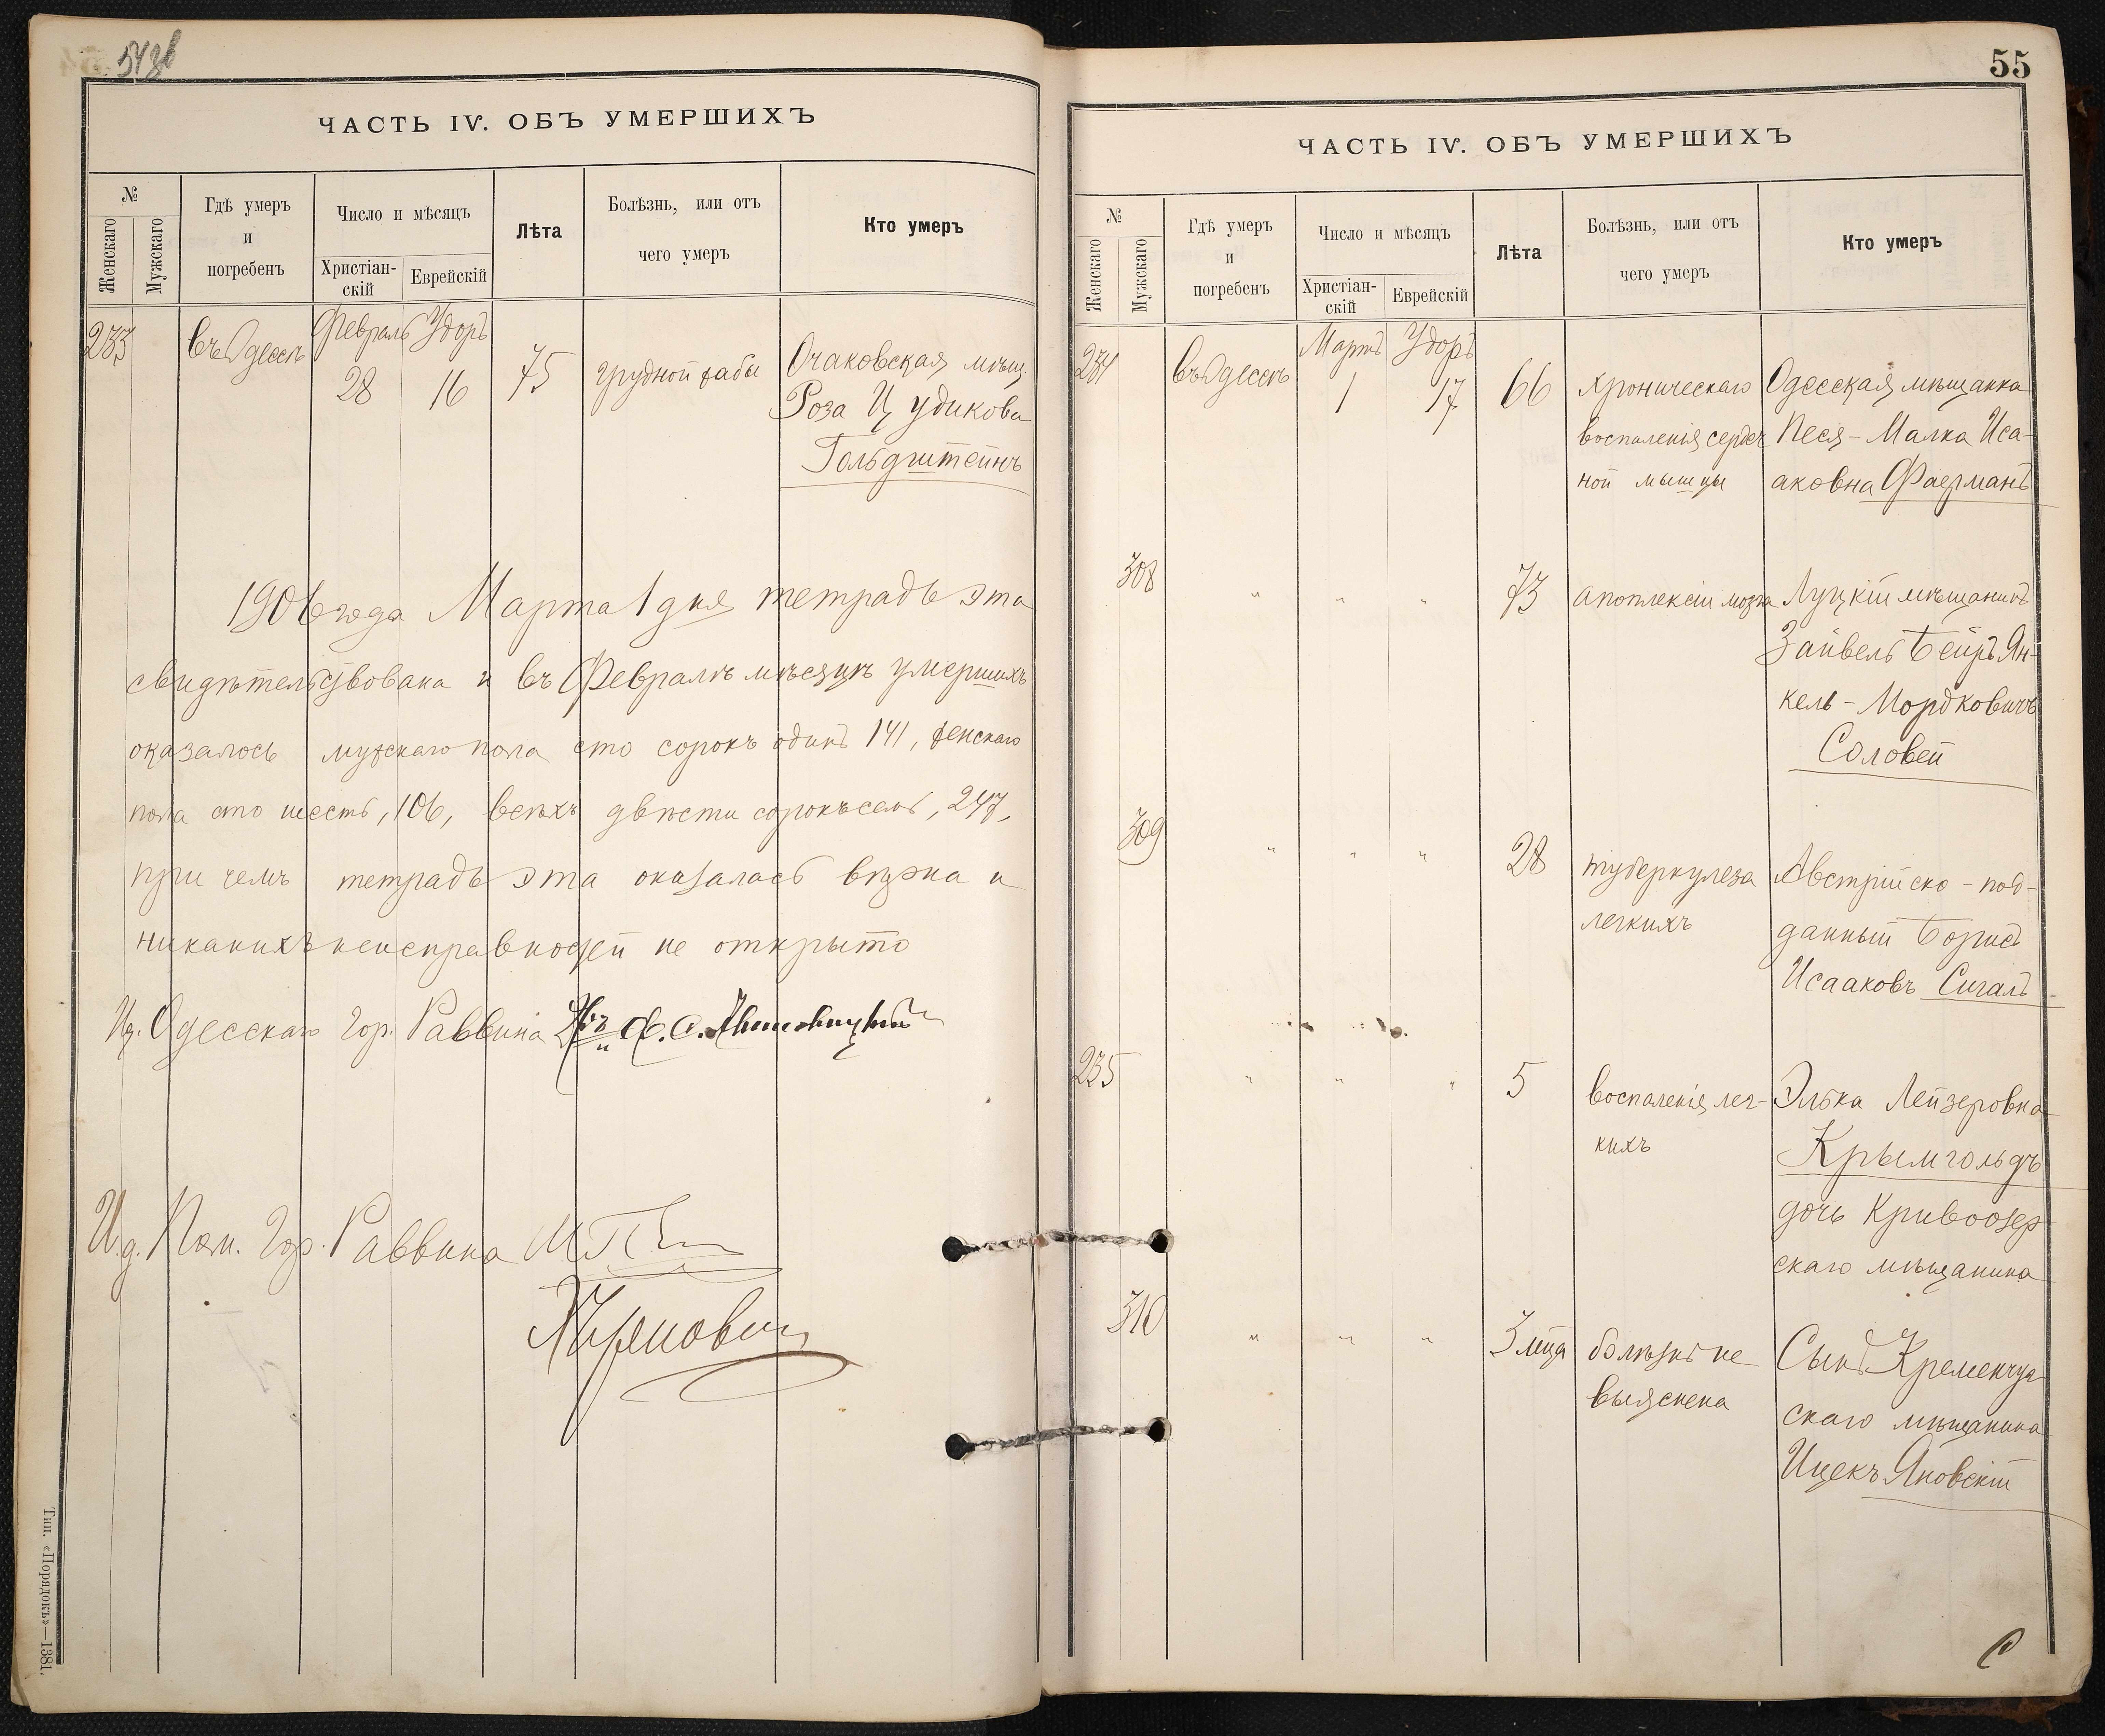 54 зв
ЧАСТЬ IV. ОБЪ УМЕРШИХЪ
№
Женскаго
Мужскаго
Гдѣ умеръ
и
погребенъ
Число и мѣсяцъ
Христіан-
скій
Еврейскій
Лѣта
Болѣзнь, или отъ
чего умеръ
Кто умеръ
233
въ Одессѣ
Февраль Удоръ
28 16
75
грудной жабы
Очаковская мѣщ.
Роза Цудикова
Гольдштейнъ
1906 года Марта 1 дня тетрадь эта
свидѣтельствована и въ Февралѣ мѣсяцѣ умершихъ
оказалось мужскаго пола сто сорокъ одинъ 141, женскаго
пола сто шесть, 106, всѣхъ двѣсти сорокъ семь, 247,
при чемъ тетрадь эта оказалась вѣрна и
никакихъ неисправностей не открыто
Одесскаго Гор. Раввина
И. д. Пом. Гор. Раввина
Тип. «Порядокъ»—1381.
55
ЧАСТЬ IV. ОБЪ УМЕРШИХЪ
№
Женскаго
Мужскаго
Гдѣ умеръ
и
погребенъ
Число и мѣсяцъ
Христіан-
скій
Еврейскій
Лѣта
Болѣзнь, или отъ
чего умеръ
Кто умеръ
234
въ Одессѣ
Мартъ Удоръ
1 17
66
хроническаго
воспаленія сердеч
ной мышцы
Одесская мѣщанка
Песя-Малка Иса-
аковна Фаерманъ
308
" " "
73
апоплексіи мозга
Луцкій мѣщанинъ
Зайвель Бейръ Ян-
кель-Мордковичъ
Соловей
309
" " "
28
туберкулеза
легкихъ
Австрійско-под-
данный Борисъ
Исааковъ Сигалъ
235
" " "
5
воспаленія лег-
кихъ
Элька Лейзеровна
Крымгольдъ
дочь Кривоозер
скаго мѣщанина
310
" " "
3 мца
болѣзнь не
выяснена
Сынъ Кременчуг
скаго мѣщанина
Ицекъ Яновскій